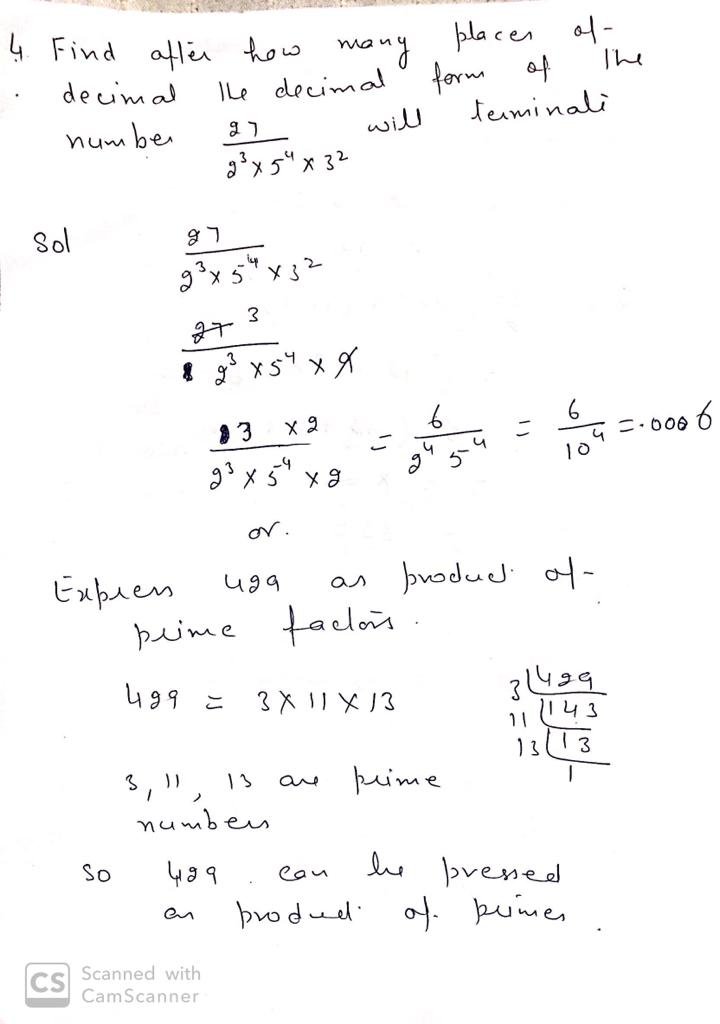 4. Find after how many places of
decimal the decimal form of the
number 27 / 2³ x 5⁴ x 3² will terminate
Sol 27 / 2³ x 5⁴ x 3²
27 3 / 2³ x 5⁴ x 9
3 x 2 / 2³ x 5⁴ x 2 = 6 / 2⁴ 5⁴ = 6 / 10⁴ = .0006
or.
Express 429 as product of
prime factors.
429 = 3 x 11 x 13
3 | 429
11 | 143
13 | 13
1
3, 11, 13 are prime
numbers
So 429 can be pressed
as product of primes.
CS Scanned with
CamScanner